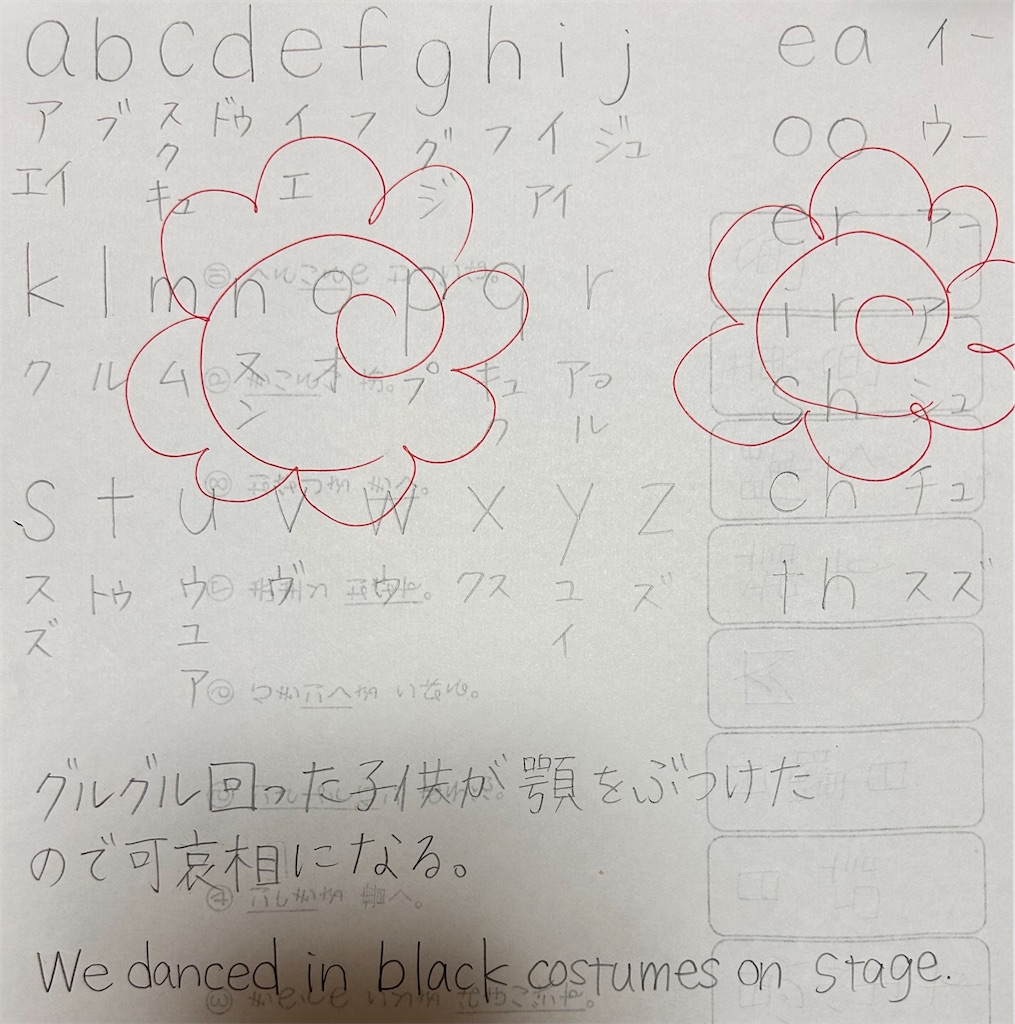 a b c d e f g h i j
ア ブ ス ドゥ イ フ グ フ イ ジュ
エイ ク エ ジ アイ
キュ
k l m n o p q r
ク ル ム ヌ オ プ キュ アー
ン ク ル
s t u v w x y z
ス トゥ ウ ヴ ウ クス ユ ズ
ズ ユ イ
ア
ea イー
oo ウー
er アー
ir アー
sh シュ
ch チュ
th スズ
グルグル回った子供が顎をぶつけた
ので可哀相になる。
We danced in black costumes on stage.